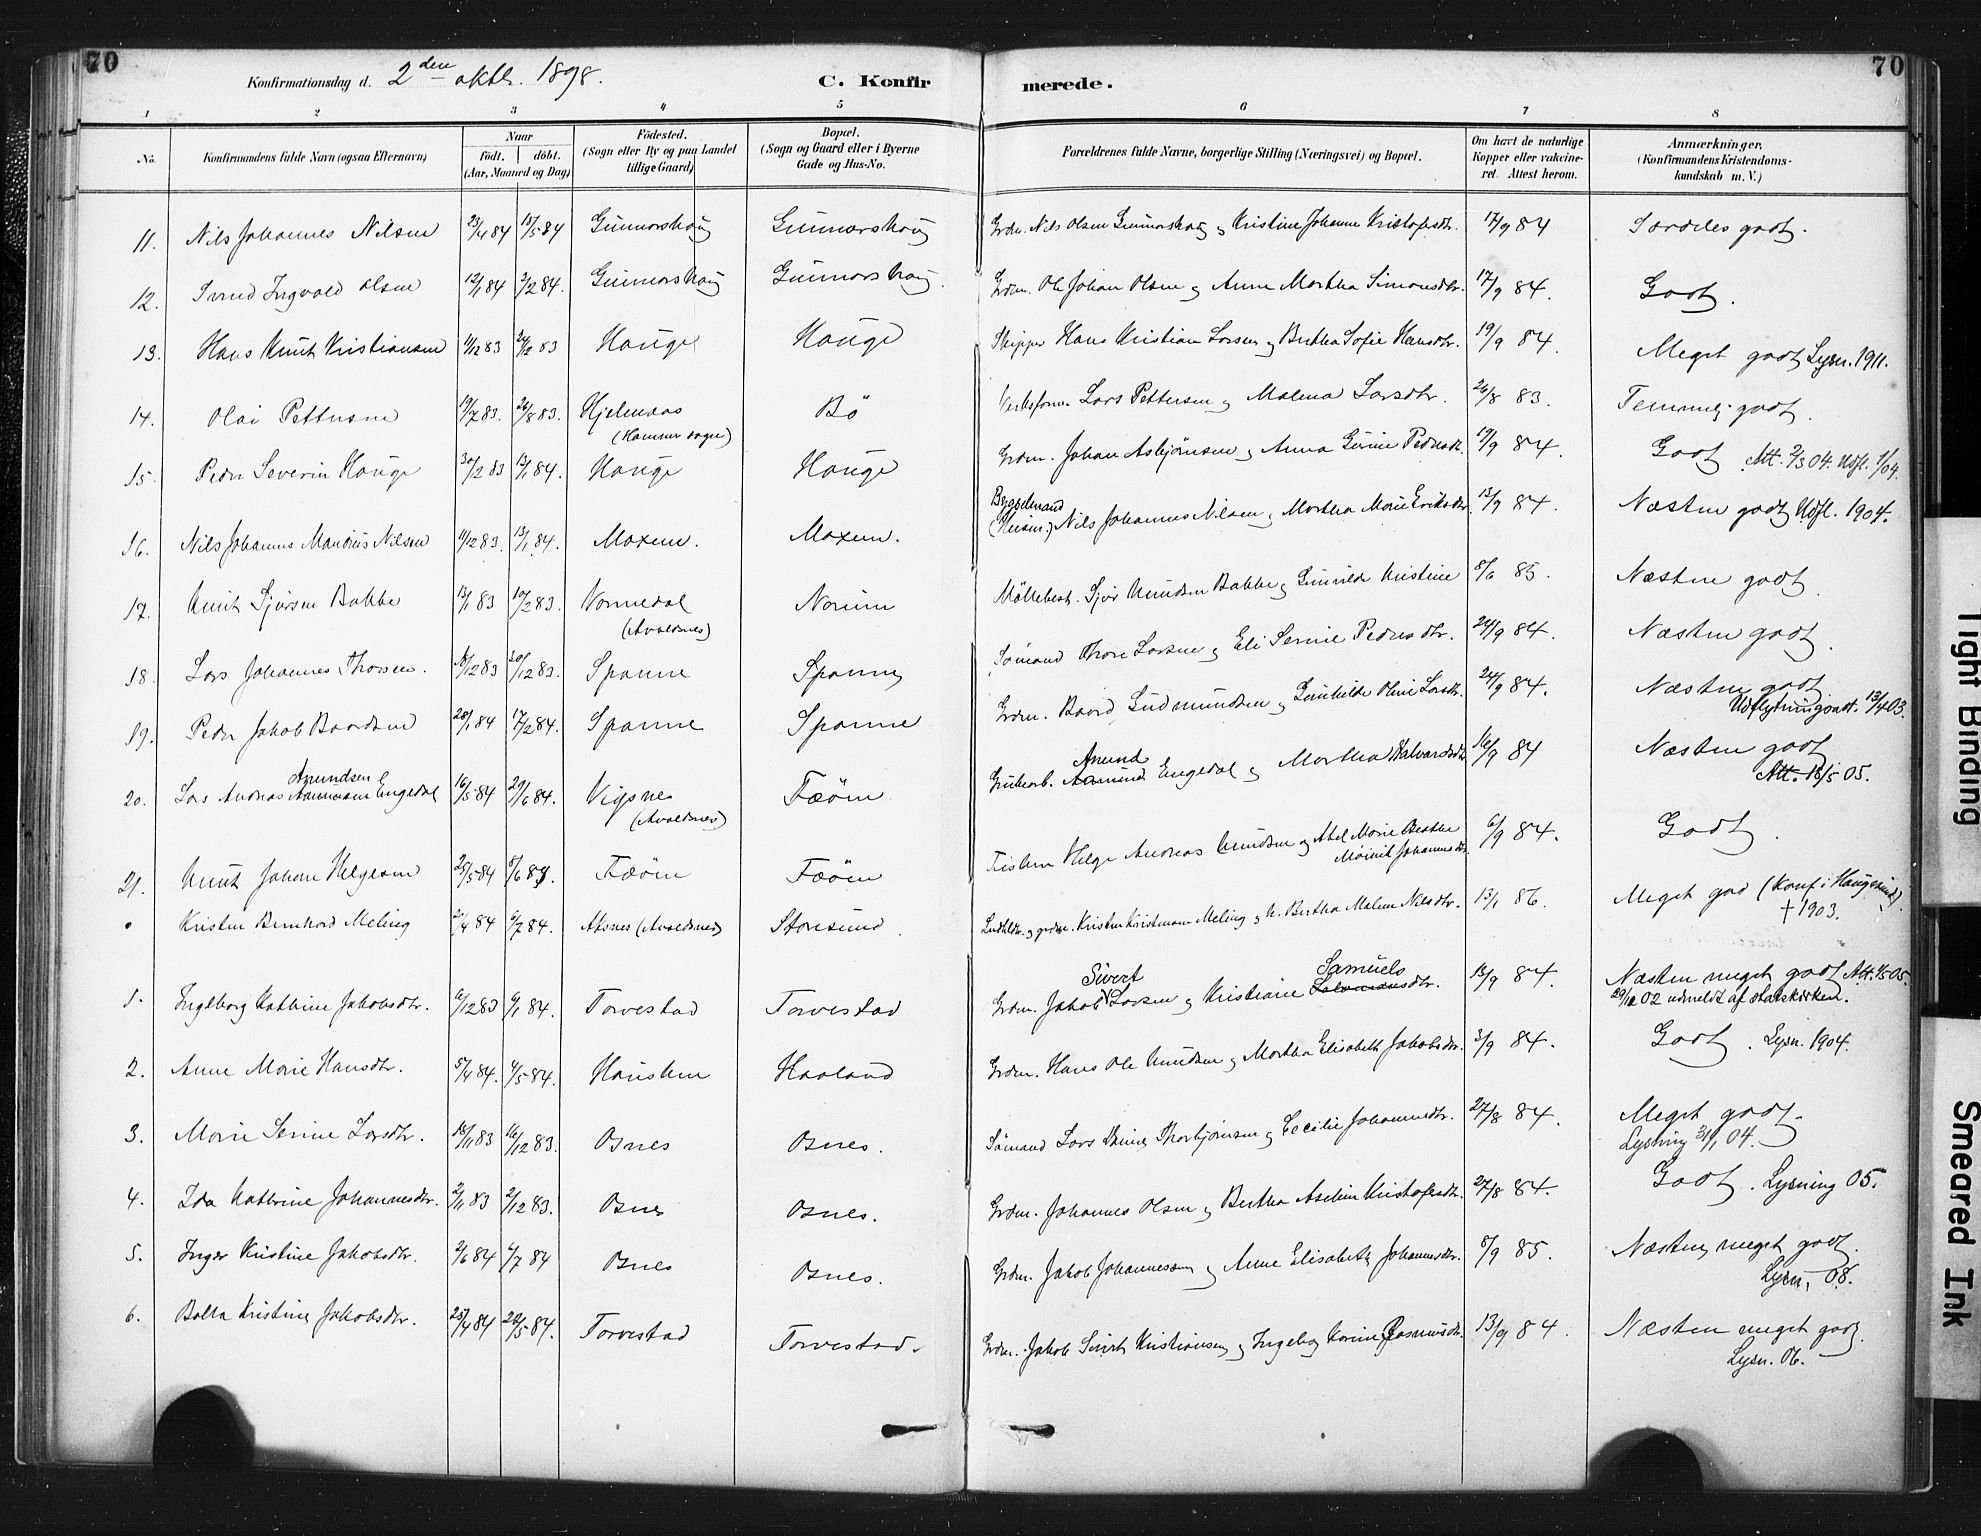 70
70
Konfirmationsdag d. 2den oktbr. 1898.
C. Konfirmerede.
1 2 3 4 5 6 7 8
No. Konfirmandens fulde Navn (ogsaa Efternavn) Naar födt. döbt. (Aar, Maaned og Dag) Födested. (Sogn eller By og paa Landet tillige Gaard) Bopæl. (Sogn og Gaard eller i Byerne Gade og Hus-No. Forældrenes fulde Navne, borgerlige Stilling (Næringsvei) og Bopæl. Om havt de naturlige Kopper eller vakcineret. Attest herom. Anmærkninger. (Konfirmandens Kristendomskundskab m. V.)
11. Nils Johannes Nilsen 23/4 84 18/5 84 Gunnarshaug Gunnarshaug Grdm. Nils Olsen Gunnarshaug og Kristine Johanne Kristofersdtr. 17/9 84 Særdeles godt.
12. Svend Ingvald Olsen 12/1 84 3/2 84. Gunnarshaug Gunnarshaug. Grdm. Ole Johan Olsen og Anne Martha Simonsdtr. 17/9 84. Godt.
13. Hans Knut Kristiansen 11/12 83 26/12 83 Hauge Hauge Skipper Hans Kristian Larsen og Bertha Sofie Hansdtr. 19/9 84. Meget godt Lysn. 1911.
14. Olai Pettersen 19/7 83. 26/8 83. Hjelmaas (Hammer sogn) Bö Verksform. Lars Pettersen og Malena Larsdtr. 26/8 83. Temmelig godt.
15. Peder Severin Hauge 30/12 83 13/1 84. Hauge Hauge Grdm. Johan Asbjørnsen og Anna Gurine Pedersdt. 19/9 84. Godt Att. 2/3 04. Udfl. 1/04.
16. Nils Johannes Mandius Nilsen 11/12 83. 13/1 84. Moxem. Moxem. Bygselmand (Husm.) Nils Johannes Nilsen og Martha Marie Eriksdtr. 13/9 84. Næsten godt Udfl. 1904.
17. Knut Sjursen Bakke 13/1 83 10/2 83. Vormedal (Avaldsnes) Norum Möllebest. Sjur Knudsen Bakke og Gunvilde Kristine 8/6 85. Næsten godt.
18. Lars Johannes Thorsen. 18/12 83 30/12 83. Spanne Spanne Sømand Thore Larsen og Eli Serine Peders dtr. 24/9 84. Næsten godt.
19. Peder Jakob Baardsen 28/1 84 17/2 84. Spanne Spanne Grdm. Baard Gudmundsen og Gunhilde Oline Larsdtr. 24/9 84. Næsten godt Udflytningsatt. 13/4 03.
20. Lars Andreas Anundsen Engedal 16/5 84 29/6 84. Vigsnes (Avaldsnes) Fæöen Grubearb. Anund Engedal og Martha Halvardsdt. 16/9 84 Næsten godt Att. 18/5 05.
21. Knut Johan Helgesen 25/5 84 8/6 84. Fæöen Fæöen Fisker Helge Andreas Knudsen og Abel Marie Berthe Johannesdtr. 6/9 84. Godt.
Kristen Bernhard Meling 20/4 84 6/7 84. Aksnes (Avaldsnes) Storesund. Grdm. Kristen Kristensen Meling og h. Bertha Malene Nilsdtr. 13/1 86. Meget god (Konf. i Haugesund). † 1903.
1. Ingeborg Kathrine Jakobsdtr. 6/12 83 6/1 84. Torvestad Torvestad Grdm. Jakob Sivert Larsen og Kristiane Samuelsdtr. 13/9 84. Næsten meget godt Att. 1/5 05. 29/12 02 udmeldt af statskirken.
2. Anne Marie Hansdtr. 5/4 84. 4/5 84. Hausken Haaland Grdm. Hans Ole Knudsen og Martha Elisabeth Jakobsdtr. 3/9 84. Godt. Lysn. 1904.
3. Marie Serine Larsdtr. 18/11 83 16/12 83. Osnes Osnes. Sømand Lars Thorbjørnsen og Cecilie Johannesdtr. 27/8 84. Meget godt. Lysning 31/1 04.
4. Ida Kathrine Johannesdtr. 2/11 83 2/12 83. Osnes Osnes. Grdm. Johannes Olsen og Bertha Aseline Kristofersdtr. 27/8 84. Godt. Lysning 05.
5. Inger Kristine Jakobsdtr. 2/6 84 4/7 84 Osnes Osnes. Grdm. Jakob Johannessen og Anne Elisabeth Johannesdtr. 8/9 85. Næsten meget godt. Lysn. 08.
6. Bolla Kristine Jakobsdtr. 28/4 84 20/5 84. Torvestad Torvestad. Grdm. Jakob Sivert Kristiansen og Ingeborg Karine Rasmusdtr. 13/9 84. Næsten meget godt. Lysn. 06.
Tight Binding
Smeared Ink